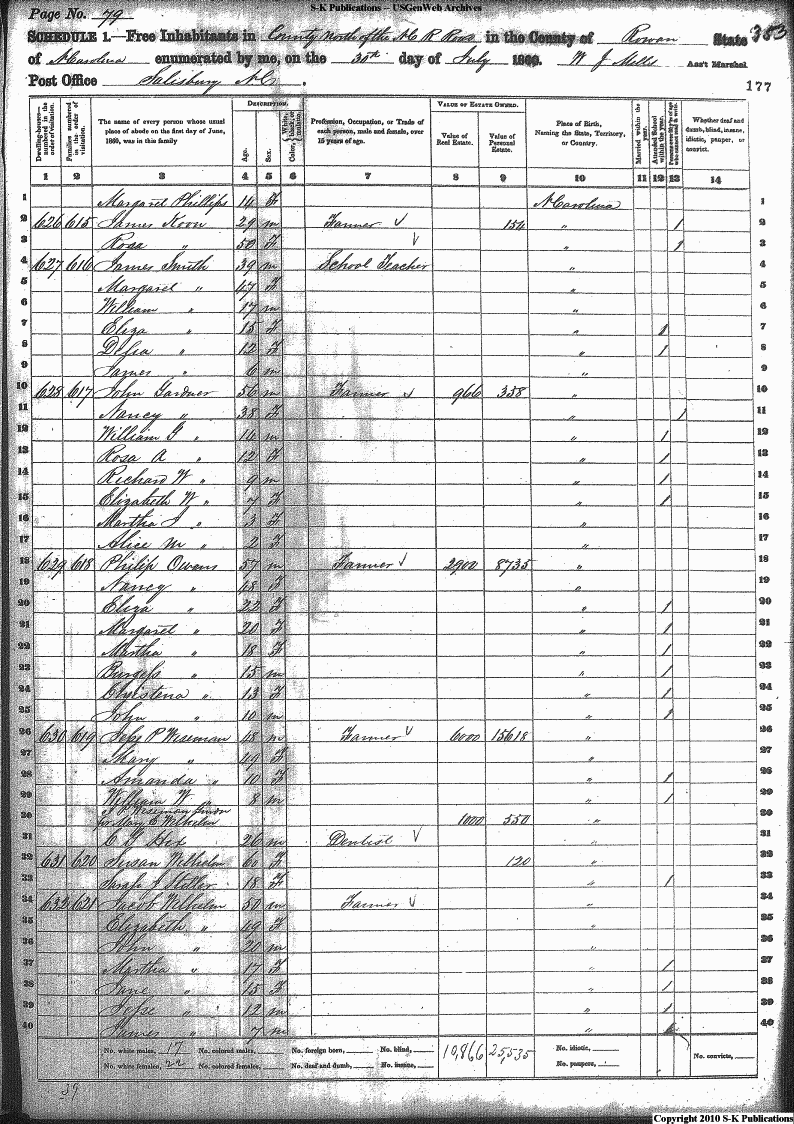 S-K Publications – USGenWeb Archives
Page No. 79
SCHEDULE 1.—Free Inhabitants in County North of the N C R Road in the County of Rowan State 383
of N Carolina enumerated by me, on the 30th day of July 1860. W J Mills Ass't Marshal.
Post Office Salisbury N C.
177
Dwelling-houses—numbered in the order of visitation.
Families numbered in the order of visitation.
The name of every person whose usual place of abode on the first day of June, 1860, was in this family
DESCRIPTION.
Age.
Sex.
Color, White, black, or mulatto.
Profession, Occupation, or Trade of each person, male and female, over 15 years of age.
VALUE OF ESTATE OWNED.
Value of Real Estate.
Value of Personal Estate.
Place of Birth, Naming the State, Territory, or Country.
Married within the year.
Attended School within the year.
Whether deaf and dumb, blind, insane, idiotic, pauper, or convict.
1 2 3 4 5 6 7 8 9 10 11 12 13 14
1 Margaret Phillips 14 F N Carolina 1
2 626 615 James Koon 29 m Farmer 154 " 1 2
3 Rosa " 50 F " 1 3
4 627 616 James Smith 39 m School Teacher " 4
5 Margaret " 47 F " 5
6 William " 17 m " 6
7 Eliza " 15 F " 1 7
8 " 12 F " 1 8
9 James " 6 m " 9
10 628 617 John Gardner 56 m Farmer 966 358 " 10
11 Nancy " 38 F " 1 11
12 William G " 14 m " 1 12
13 Rosa A " 12 F " 1 13
14 Richard W " 9 m " 1 14
15 Elizabeth W " 7 F " 1 15
16 Martha J " 3 F " 16
17 Alice M " 2 F " 17
18 629 618 Philip Owens 57 m Farmer 2900 8735 " 18
19 Nancy " 48 F " 19
20 Eliza " 22 F " 1 20
21 Margaret " 20 F " 1 21
22 Martha " 18 F " 1 22
23 Burgess " 15 m " 1 23
24 Christena " 13 F " 1 24
25 John " 10 m " 1 25
26 630 619 Jesse P Wiseman 48 m Farmer 6000 15618 " 26
27 Mary " 49 F " 27
28 Amanda " 10 F " 1 28
29 William W " 8 m " 1 29
30 J P Wiseman
for Mary E Wilhelm 1000 550 " 30
31 26 m Dentist " 31
32 631 620 Susan Wilhelm 60 F 120 " 32
33 Sarah J Stiller 18 F " 1 33
34 632 621 Jacob Wilhelm 50 m Farmer " 34
35 Elizabeth " 49 F " 35
36 John " 20 m " 36
37 Martha " 17 F " 1 37
38 Jane " 15 F " 1 38
39 Jesse " 12 m " 1 39
40 James " 7 m " 40
No. white males, 17 No. colored males, No. foreign born, No. blind, 10,866 25,535 No. idiotic, No. convicts,
No. white females, 22 No. colored females, No. deaf and dumb, No. insane, No. paupers,
39
Copyright 2010 S-K Publications